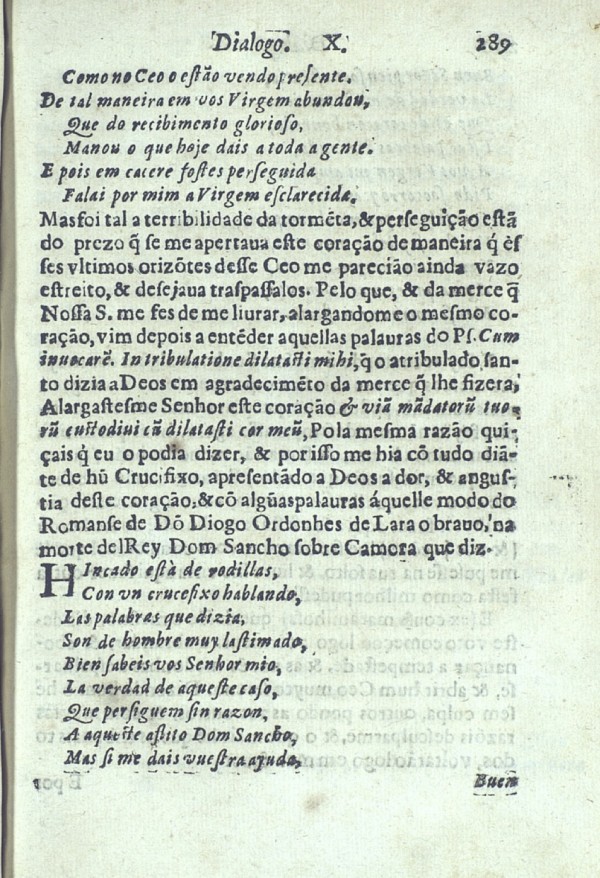 Dialogo. X. 289
Como no Ceo o estão vendo presente.
De tal maneira em vos Virgem abundou,
Que do recibimento glorioso,
Manou o que hoje dais a toda a gente.
E pois em cacere fostes perseguida
Falai por mim a Virgem esclarecida.
Mas foi tal a terribilidade da tormẽta, & perseguição estã
do prezo q̃ se me apertaua este coração de maneira q̃ ès
ses vltimos orizõtes desse Ceo me parecião ainda vazo
estreito, & desejaua traspassalos. Pelo que, & da merce q̃
Nossa S. me fes de me liurar, alargandome o mesmo co-
ração, vim depois a entẽder aquellas palauras do Ps. Cum
inuocarẽ. In tribulatione dilatasti mihi, q̃ o atribulado san-
to dizia a Deos em agradecimẽto da merce q̃ lhe fizera,
Alargastesme Senhor este coração & viã mãdatorũ tuo-
rũ custodiui cũ dilatasti cor meũ, Pola mesma razão qui-
çais q̃ eu o podia dizer, & por isso me hia cõ tudo diã-
te de hũ Crucifixo, apresentãdo a Deos a dor, & angus-
tia deste coração, & cõ algũas palauras áquelle modo do
Romanse de Dõ Diogo Ordonhes de Lara o brauo, na
morte del Rey Dom Sancho sobre Camora que diz.
HIncado està de rodillas,
Con vn crucefixo hablando,
Las palabras que dizia,
Son de hombre muy lastimado,
Bien sabeis vos Senhor mio,
La verdad de aqueste caso,
Que persiguem sin razon,
A aqueste astito Dom Sancho,
Mas si me dais vuestra ajuda,
Buen